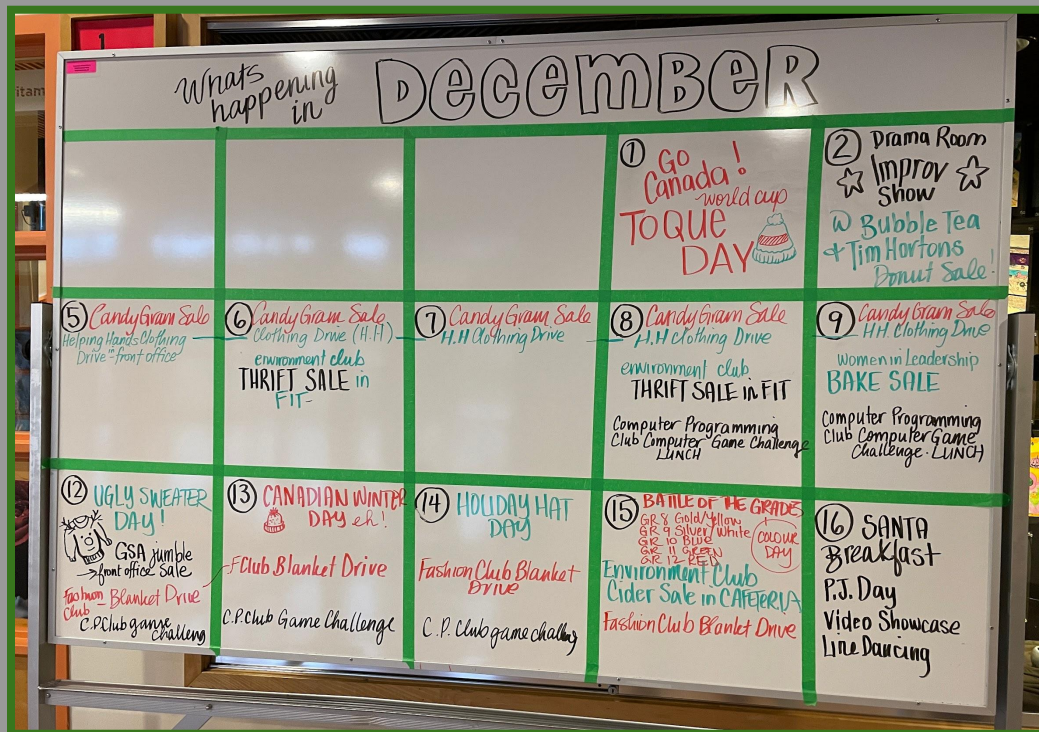 1
itam
Whats
happening
in
DECEMBER
1
Go
Canada!
world cup
TOQUE
DAY
2
Drama Room
Improv
Show
@ Bubble Tea
+ Tim Hortons
Donut Sale!
5
Candy Gram Sale
Helping Hands Clothing
Drive in front office
6
Candy Gram Sale
Clothing Drive (H.H)
environment club
THRIFT SALE in
FIT
7
Candy Gram Sale
H.H Clothing Drive
8
Candy Gram Sale
H.H Clothing Drive
environment club
THRIFT SALE in FIT
Computer Programming
Club Computer Game Challenge
LUNCH
9
Candy Gram Sale
H.H. Clothing Drive
Women in Leadership
BAKE SALE
Computer Programming
Club Computer Game
Challenge - LUNCH
12
UGLY SWEATER
DAY!
GSA jumble
→ front office Sale
Fashion
Club - Blanket Drive
C.P. Club game
challeng
13
CANADIAN WINTER
DAY eh!
F Club Blanket Drive
C.P. Club Game Challenge
14
HOLIDAY HAT
DAY
Fashion Club Blanket
Drive
C.P. Club game challeng
15
BATTLE OF THE GRADES
GR 8 Gold/Yellow
GR 9 Silver/White
GR 10 BLUE
GR 11 GREEN
GR 12 RED
COLOUR
DAY
Environment Club
Cider Sale in CAFETERIA
Fashion Club Blanket Drive
16
SANTA
Breakfast
P.J. Day
Video Showcase
Line Dancing